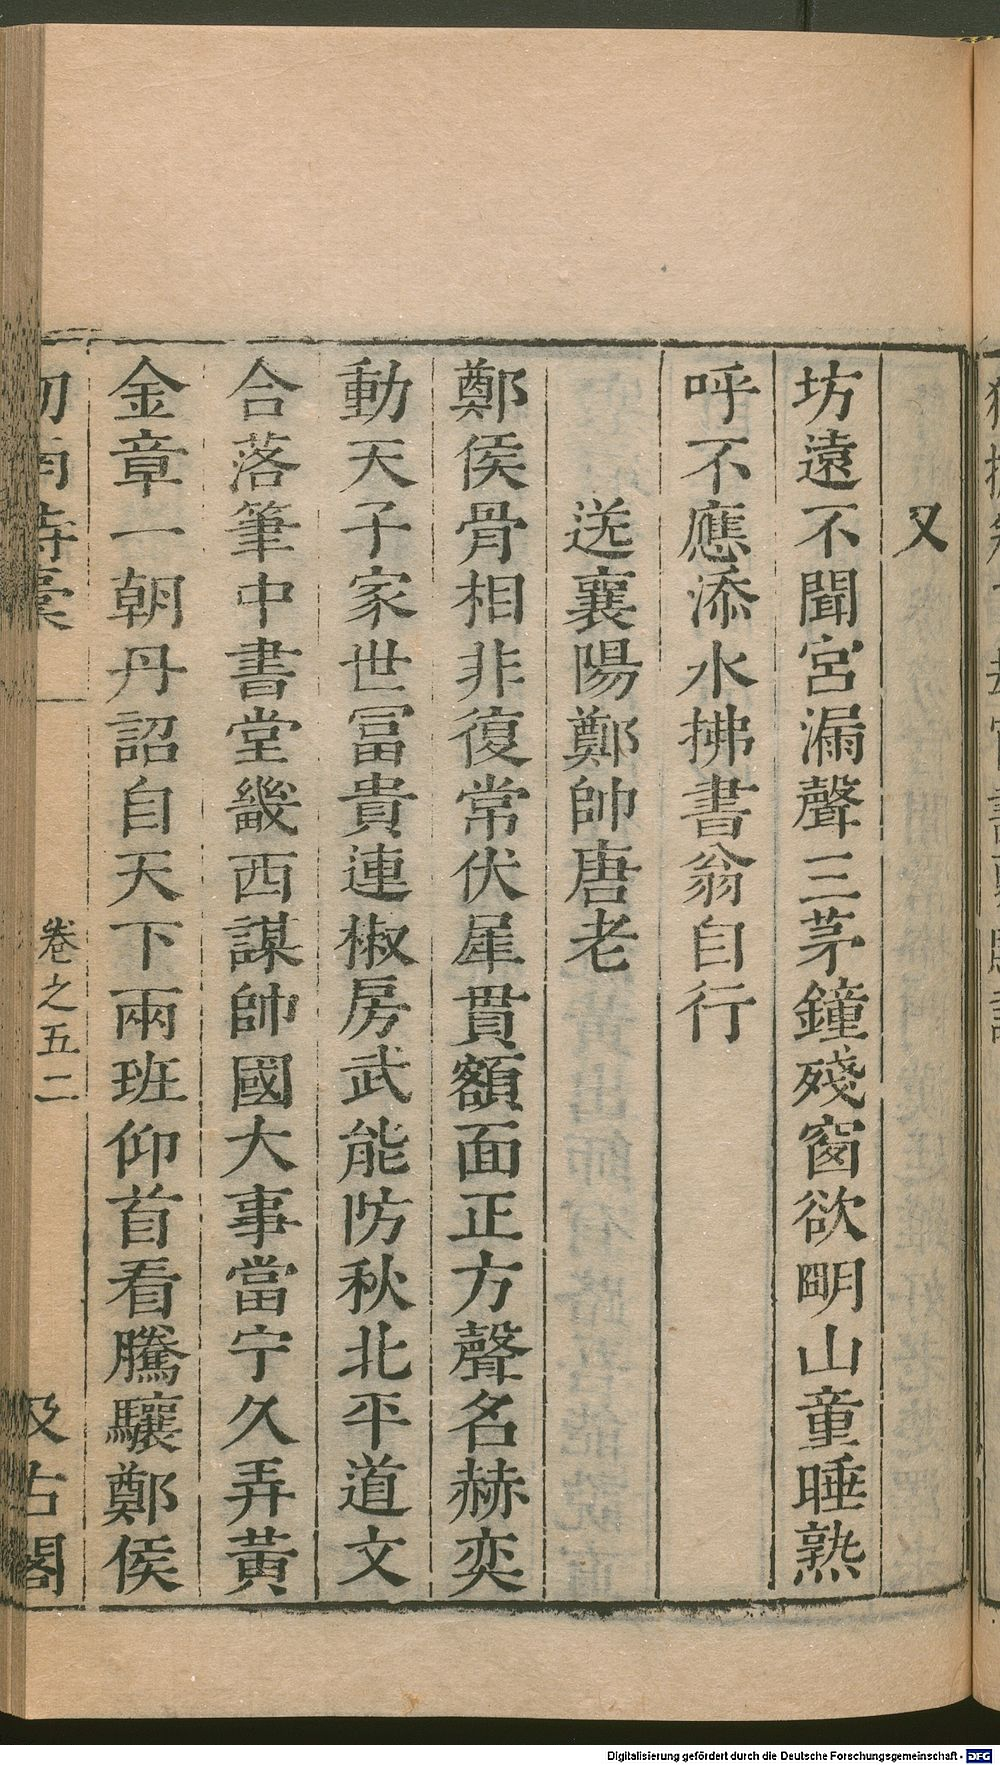 又
坊遠不聞宮漏聲三茅鐘殘窗欲朙山童睡熟
呼不應添水拂書翁自行
送襄陽鄭帥唐老
鄭侯骨相非復常伏犀貫額面正方聲名赫奕
動天子家世冨貴連椒房武能防秋北平道文
合落筆中書堂畿西謀帥國大事當宁久弄黃
金章一朝丹詔自天下兩班仰首看騰驤鄭侯
卷之五二
及古閣
Digitalisierung gefördert durch die Deutsche Forschungsgemeinschaft - DFG